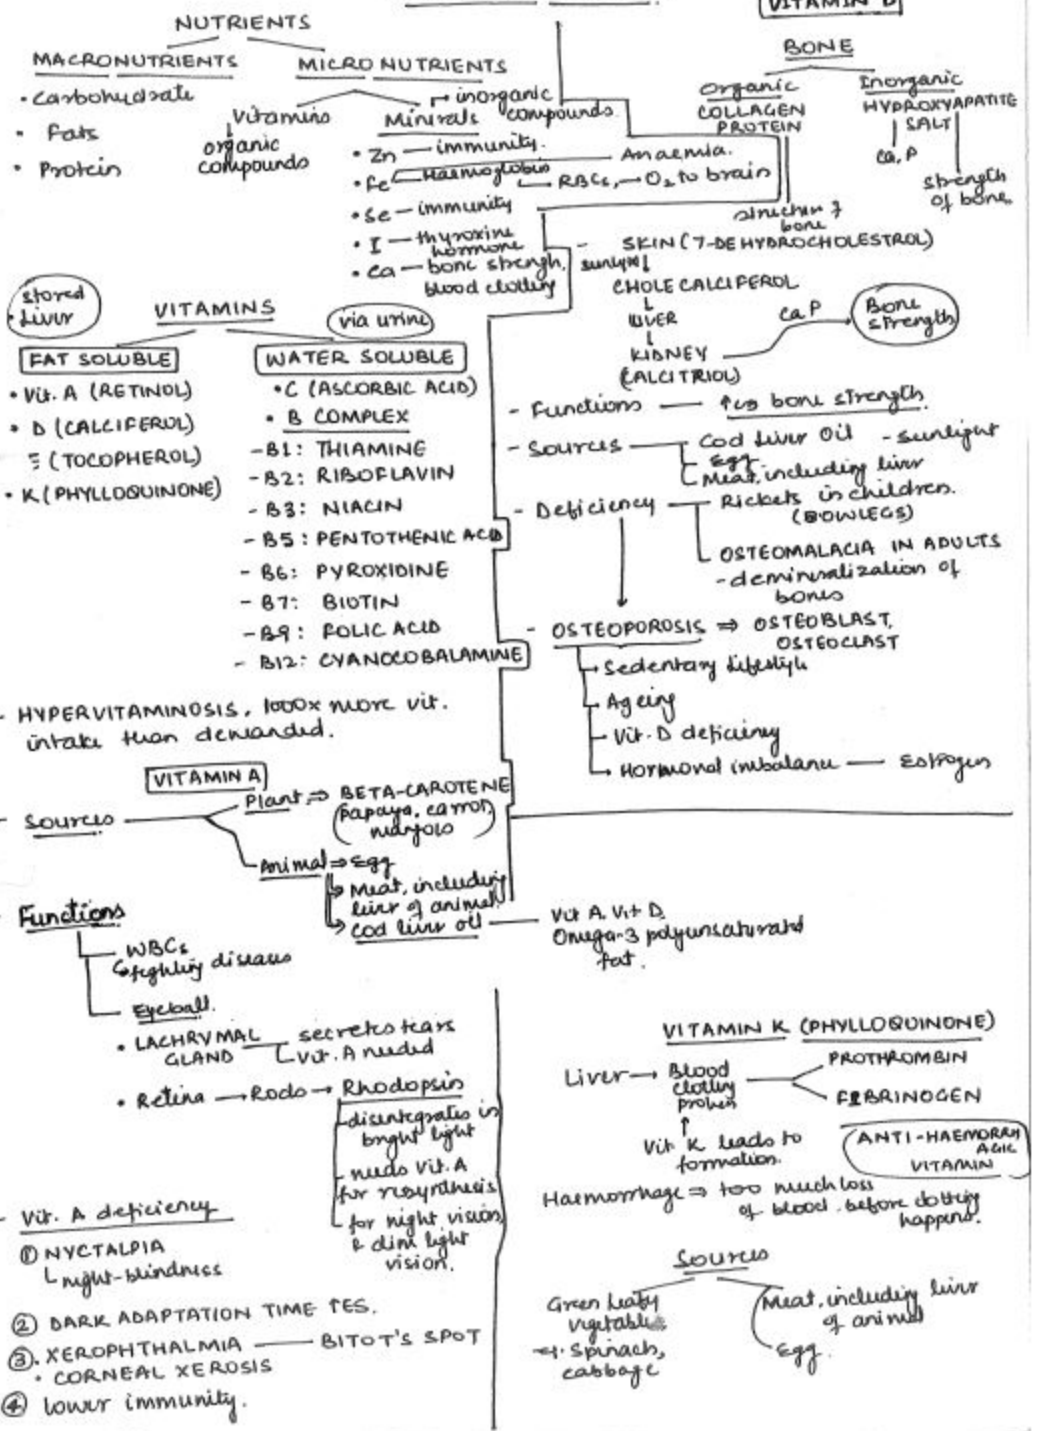 NUTRIENTS
MACRONUTRIENTS
• Carbohydrate
• Fats
• Protein
MICRO NUTRIENTS
Vitamins
organic
compounds
Minirals
inorganic
compounds.
• Zn — immunity.
• Fe Haemoglobin — Anaemia.
RBCs, → O2 to brain
• Se — immunity
• I — thyroxine
hormone
• Ca — bone strengh,
blood clotting
stored
• Liver
VITAMINS
via urine
FAT SOLUBLE
• Vit. A (RETINOL)
• D (CALCIFEROL)
E (TOCOPHEROL)
• K (PHYLLOQUINONE)
WATER SOLUBLE
• C (ASCORBIC ACID)
• B COMPLEX
- B1: THIAMINE
- B2: RIBOFLAVIN
- B3: NIACIN
- B5: PENTOTHENIC ACID
- B6: PYROXIDINE
- B7: BIOTIN
- B9: FOLIC ACID
- B12: CYANOCOBALAMINE
- HYPERVITAMINOSIS, 1000x more vit.
intake than demanded.
VITAMIN A
- Sources
Plant ⇒ BETA-CAROTENE
(papaya, carrot,
mangoes)
Animal ⇒ Egg
Meat, including
liver of animal.
Cod liver oil — Vit A. Vit D.
Omega-3 polyunsaturated
fat.
Functions
WBCs
fighting diseases
Eyeball.
• LACHRYMAL
GLAND
secretes tears
Vit. A needed
• Retina → Rods → Rhodopsin
- disintegrates in
bright light
- needs Vit. A
for resynthesis
for night vision
& dim light
vision.
- Vit. A deficiency
① NYCTALPIA
night-blindness
② DARK ADAPTATION TIME ↑ES.
③. XEROPHTHALMIA — BITOT'S SPOT
• CORNEAL XEROSIS
④ lower immunity.
VITAMIN D
BONE
Organic
COLLAGEN
PROTEIN
structure of
bone
Inorganic
HYDROXYAPATITE
SALT
Ca, P
strength
of bone.
- SKIN (7-DEHYDROCHOLESTROL)
sunlight
CHOLECALCIFEROL
LIVER
KIDNEY
(CALCITRIOL)
Ca P
Bone
strength
- Functions — ↑es bone strength.
- Sources
Cod Liver Oil - sunlight
Egg
Meat, including liver
- Deficiency
Rickets in children.
(BOWLEGS)
OSTEOMALACIA IN ADULTS
- demineralization of
bones
- OSTEOPOROSIS ⇒ OSTEOBLAST,
OSTEOCLAST
Sedentary lifestyle
Ageing
Vit. D deficiency
Hormonal imbalance — Estrogen
VITAMIN K (PHYLLOQUINONE)
Liver → Blood
clotting
protein
PROTHROMBIN
FIBRINOGEN
Vit K leads to
formation.
ANTI-HAEMORRH
AGIC
VITAMIN
Haemorrhage ⇒ too much loss
of blood before clotting
happens.
Sources
Green Leafy
vegetables
eg. Spinach,
cabbage
Meat, including liver
of animal
Egg.